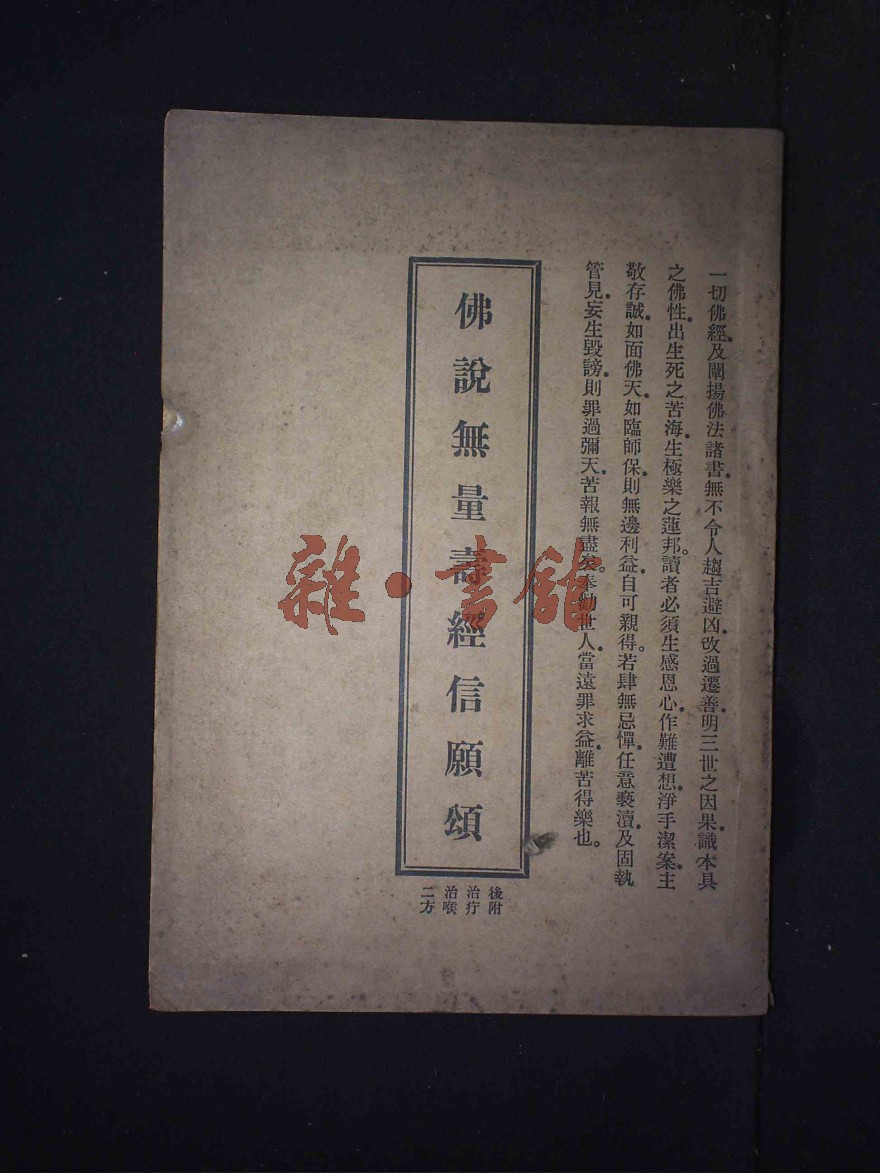 一切佛經。及闡揚佛法諸書。無不令人趨吉避凶。改過遷善。明三世之因果。識本具
之佛性。出生死之苦海。生極樂之蓮邦。讀者必須生感恩心。作難遭想。淨手潔案。主
敬存誠。如面佛天。如臨師保。則無邊利益。自可親得。若肆無忌憚。任意褻瀆。及固執
管見。妄生毀謗。則罪過彌天。苦報無盡矣。奉勸世人。當遠罪求益。離苦得樂也。
佛說無量壽經信願頌
後附
治疔
治喉
二方
雜·書館